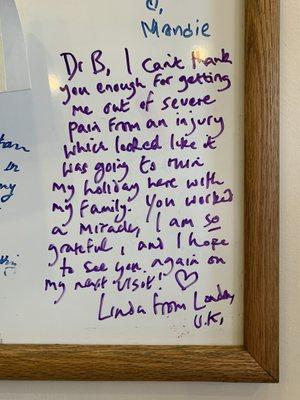 Mandie
Dr B, I can't thank
you enough for getting
me out of severe
pain from an injury
which looked like it
was going to ruin
my holiday here with
my family. You worked
a miracle, I am so
grateful, and I hope
to see you again on
my next visit! ♡
Linda from London
U.K,
in
my